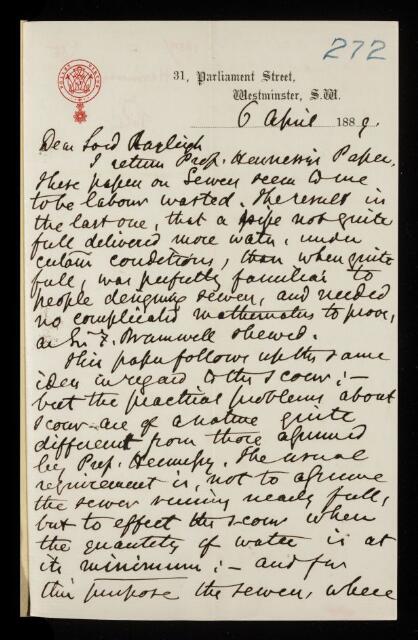 272
31, Parliament Street,
Westminster, S.W.
6 April 1889.
Dear Lord Rayleigh
I return Prof. Hennessy's Paper.
These papers on Sewers seem to me
to be labour wasted. The result in
the last one, that a pipe not quite
full delivered more water, under
certain conditions, than when quite
full, was perfectly familiar to
people designing sewers, and needed
no complicated mathematics to prove,
as Sir F. Bramwell shewed.
This paper follows up the same
idea in regard to the scour; —
but the practical problems about
scour are of a nature quite
different from those assumed
by Prof. Hennessy. The usual
requirement is, not to assume
the sewer running nearly full,
but to effect the scour when
the quantity of water is at
its minimum; — and for
this purpose the sewer, where